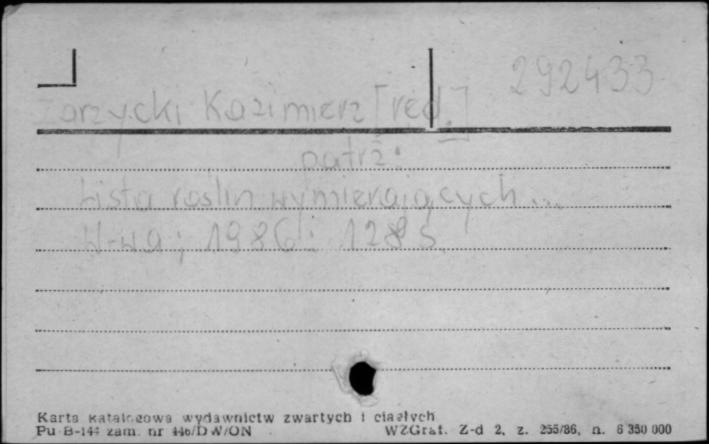 292433
Zarzycki Kazimierz [red.]
patrz:
Lista roślin wymierających...
W-wa; 1986; 128 s.
Karta katalogowa wydawnictw zwartych i ciągłych
Pu B-144 zam. nr 446/DW/ON WZGraf. Z-d 2, z. 255/86, n. 6 350 000